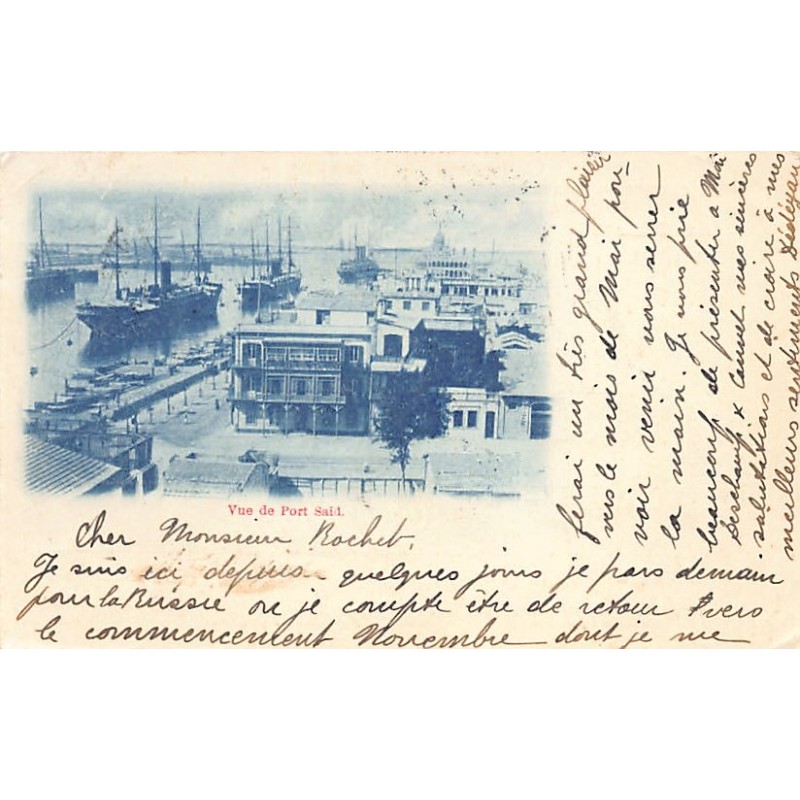 Vue de Port Said.
Cher Monsieur Rochet.
Je suis ici depuis quelques jours je pars demain
pour la Russie ou je compte être de retour vers
le commencement Novembre dont je me
ferai un très grand plaisir
vers le mois de Mai pou-
voir venir vous serrer
la main. Je vous prie
beaucoup de présenter a
Deschamp x mes sincères
salutations et de croire à mes
meilleurs sentiments